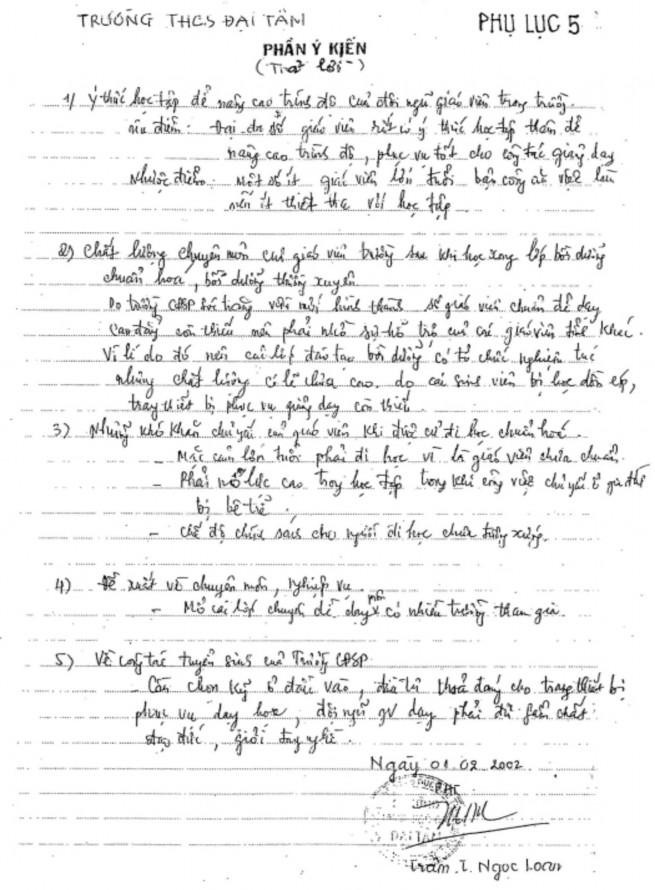 TRƯỜNG THCS ĐẠI TÂM
PHỤ LỤC 5
PHẦN Ý KIẾN
(Trả lời)
1/ Ý thức học tập để nâng cao trình độ của đội ngũ giáo viên trong trường.
Ưu điểm: Đại đa số giáo viên rất có ý thức học tập thêm để
nâng cao trình độ, phục vụ tốt cho công tác giảng dạy
Nhược điểm: Một số ít giáo viên lớn tuổi bận công ăn việc làm
nên ít thiết tha với học tập
2) Chất lượng chuyên môn của giáo viên trường sau khi học xong lớp bồi dưỡng
chuẩn hoá, bồi dưỡng thường xuyên
Do trường CĐSP Sóc Trăng vừa mới hình thành số giáo viên chuẩn để dạy
Cao đẳng còn thiếu nên phải nhờ sự hỗ trợ của các giáo viên tỉnh khác.
Vì lí do đó nên các lớp đào tạo bồi dưỡng có tổ chức nghiêm túc
nhưng chất lượng có lẽ chưa cao do các sinh viên bị học dồn ép,
trang thiết bị phục vụ giảng dạy còn thiếu.
3) Những khó khăn chủ yếu của giáo viên khi được cử đi học chuẩn hoá.
- Mặc cảm lớn tuổi phải đi học vì là giáo viên chưa chuẩn.
- Phải nỗ lực cao trong học tập trong khi công việc chủ yếu ở gia đình
bị bê trễ.
- Chế độ chính sách cho người đi học chưa tương xứng.
4) Đề xuất về chuyên môn, nghiệp vụ.
- Mở các lớp chuyên đề dạy môn có nhiều trường tham gia.
5) Về công tác tuyển sinh của Trường CĐSP
- Cần chọn kỹ ở đầu vào, đầu tư thoả đáng cho trang thiết bị
phục vụ dạy học, đội ngũ gv dạy phải đủ phẩm chất
đạo đức, giỏi tay nghề.
Ngày 01.02.2002
ĐẠI TÂM
Trầm T. Ngọc Loan